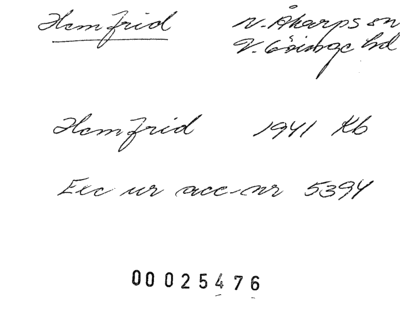 Hemfrid N. Åkarps sn
V. Göinge hd
Hemfrid 1941 Kb
Exc ur acc-nr 5394
00025476